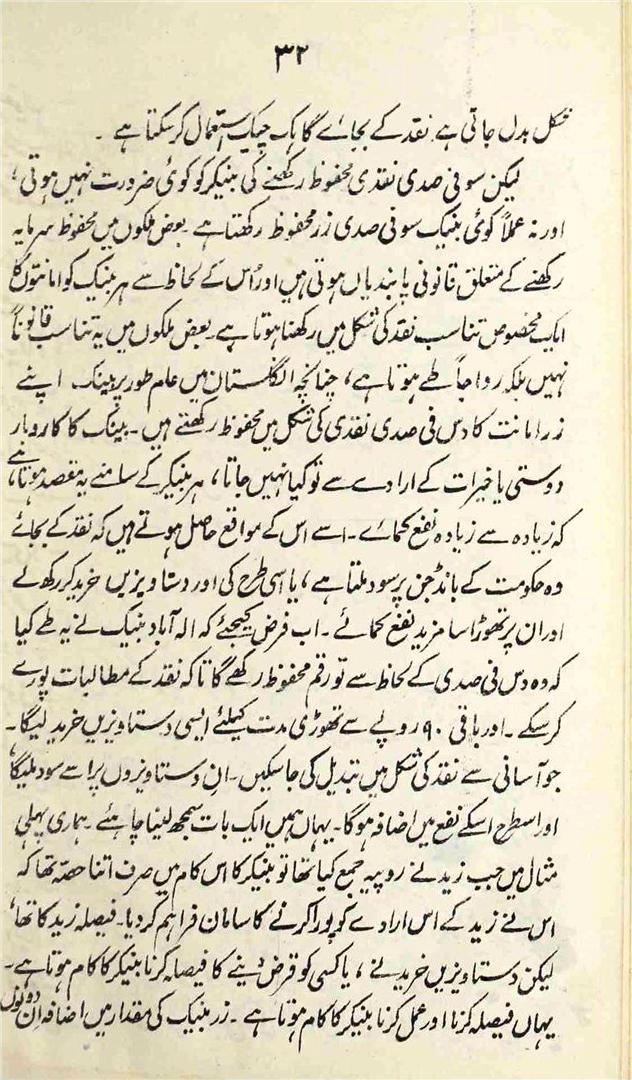 ۳۲
شکل بدل جاتی ہے نقد کے بجائے گاہک چیک استعمال کر سکتا ہے ۔
لیکن سو فی صدی نقدی محفوظ رکھنے کی بنیکر کو کوئی ضرورت نہیں ہوتی،
اور نہ عملاً کوئی بنیک سو فی صدی زر محفوظ رکھتا ہے ۔ بعض ملکوں میں محفوظ سرمایہ
رکھنے کے متعلق قانونی پابندیاں ہوتی ہیں اور اُس کے لحاظ سے ہر بینک کو امانتوں کا
ایک مخصوص تناسب نقد کی شکل میں رکھنا ہوتا ہے ۔ بعض ملکوں میں یہ تناسب قانوناً
نہیں بلکہ رواجاً طے ہوتا ہے، چنانچہ انگلستان میں عام طور پر بینک اپنے
زرِ امانت کا دس فی صدی نقدی کی شکل میں محفوظ رکھتے ہیں ۔ بینک کا کاروبار
دوستی یا خیرات کے ارادے سے تو کیا نہیں جاتا، ہر بنیکر کے سامنے یہ مقصد ہوتا ہے
کہ زیادہ سے زیادہ نفع کمائے ۔ اسے اس کے مواقع حاصل ہوتے ہیں کہ نقد کے بجائے
وہ حکومت کے بانڈ جن پر سود ملتا ہے، یا اسی طرح کی اور دستاویزیں خرید کر رکھ لے
اور ان پر تھوڑا سا مزید نفع کمائے ۔ اب فرض کیجئے کہ الہ آباد بنیک نے یہ طے کیا
کہ وہ دس فی صدی کے لحاظ سے تو رقم محفوظ رکھے گا تاکہ نقد کے مطالبات پورے
کر سکے ۔ اور باقی ۹۰ روپے سے تھوڑی مدت کیلئے ایسی دستاویزیں خرید لیگا ۔
جو آسانی سے نقد کی شکل میں تبدیل کی جا سکیں ۔ ان دستاویزوں پر اسے سود ملیگا،
اور اسطرح اسکے نفع میں اضافہ ہوگا ۔ یہاں ہمیں ایک بات سمجھ لینا چاہئے ۔ ہماری پہلی
مثال میں جب زید نے روپیہ جمع کیا تھا تو بنیکر کا اس کام میں صرف اتنا حصّہ تھا کہ
اس نے زید کے اس ارادے کو پورا کرنے کا سامان فراہم کر دیا ۔ فیصلہ زید کا تھا،
لیکن دستاویزیں خریدنے، یا کسی کو قرض دینے کا فیصلہ کرنا بنیکر کا کام ہوتا ہے ۔
یہاں فیصلہ کرنا اور عمل کرنا بنیکر کا کام ہوتا ہے ۔ زرِ بنیک کی مقدار میں اضافہ اِن دونوں